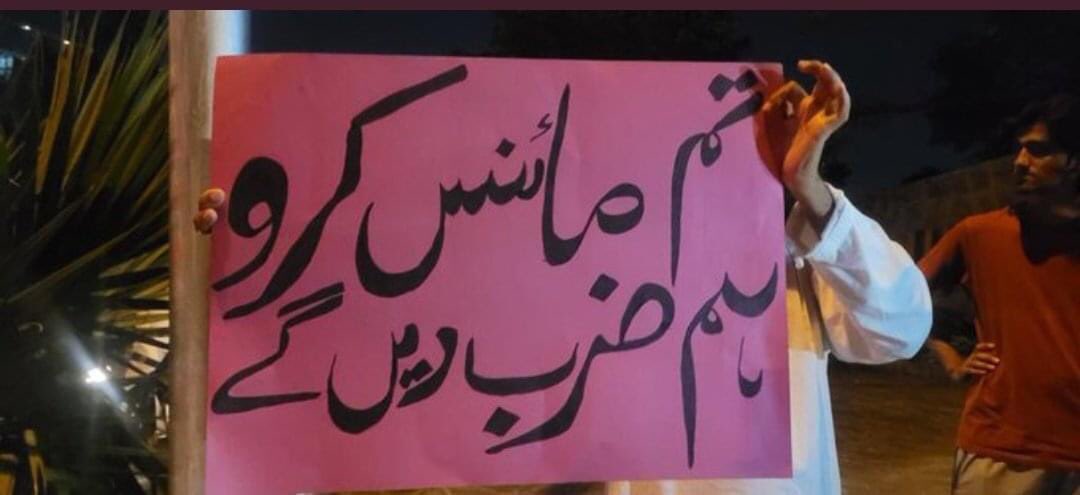 تم مائنس کرو
ہم ضرب دیں گے